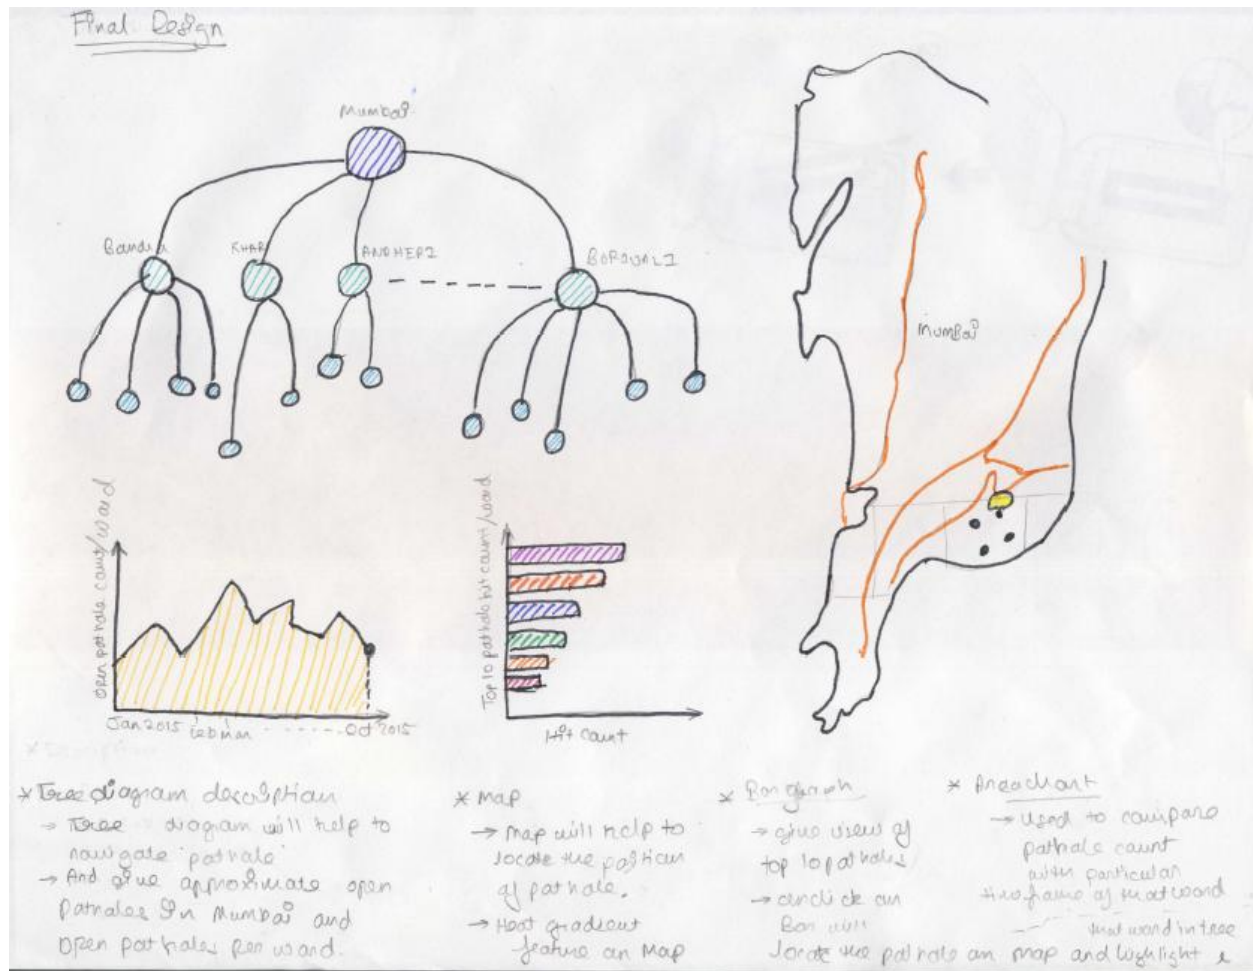 Final Design
Mumbai
Bandra
KHAR
ANDHERI
BORIVALI
Mumbai
Open pathole count/ward
Jan 2015 feb mar Oct 2015
Top 10 pathole hit count/ward
Hit count
* Tree diagram description
→ Tree diagram will help to
navigate pathole
→ And give approximate open
Patholes In Mumbai and
open patholes per ward.
* Map
→ Map will help to
locate the position
of pathole.
→ Heat gradient
feature on Map
* Bar graph
→ give view of
top 10 patholes
→ onclick on
Bar will
locate the pathole on map and highlight
that ward in tree
* Area chart
→ Used to compare
pathole count
with particular
timeframe of that ward